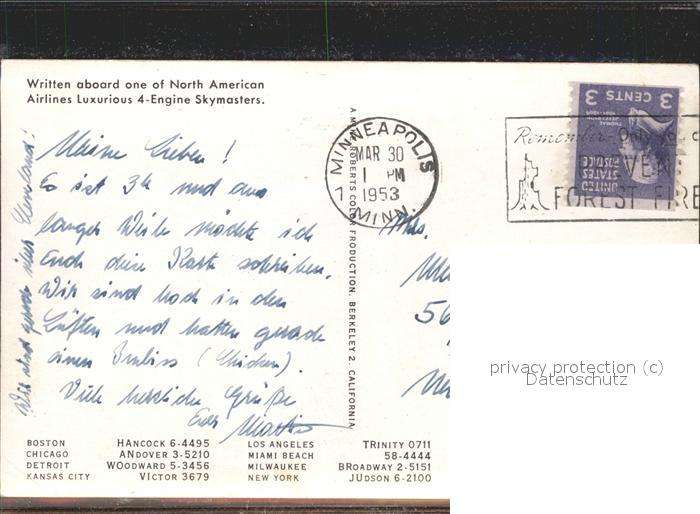 Written aboard one of North American
Airlines Luxurious 4-Engine Skymasters.
Meine Lieben!
Es ist 3h und aus
langer Weile möchte ich
Euch diese Karte schreiben.
Wir sind hoch in den
Lüften und hatten gerade
einen Imbiss (Chicken).
Viele herzliche Grüße
Euer
Wir sind gerade über Cleveland!
BOSTON HANCOCK 6-4495
CHICAGO ANDOVER 3-5210
DETROIT WOODWARD 5-3456
KANSAS CITY VICTOR 3679
LOS ANGELES TRINITY 0711
MIAMI BEACH 58-4444
MILWAUKEE BROADWAY 2-5151
NEW YORK JUDSON 6-2100
A MIKE ROBERTS COLOR PRODUCTION. BERKELEY 2, CALIFORNIA
MINNEAPOLIS
MAR 30
1 PM
1953
MINN.
7
3 CENTS 3
UNITED
STATES
POSTAGE
Remember. Only you c
VEN
FOREST FIRE
Mrs.
56
privacy protection (c)
Datenschutz